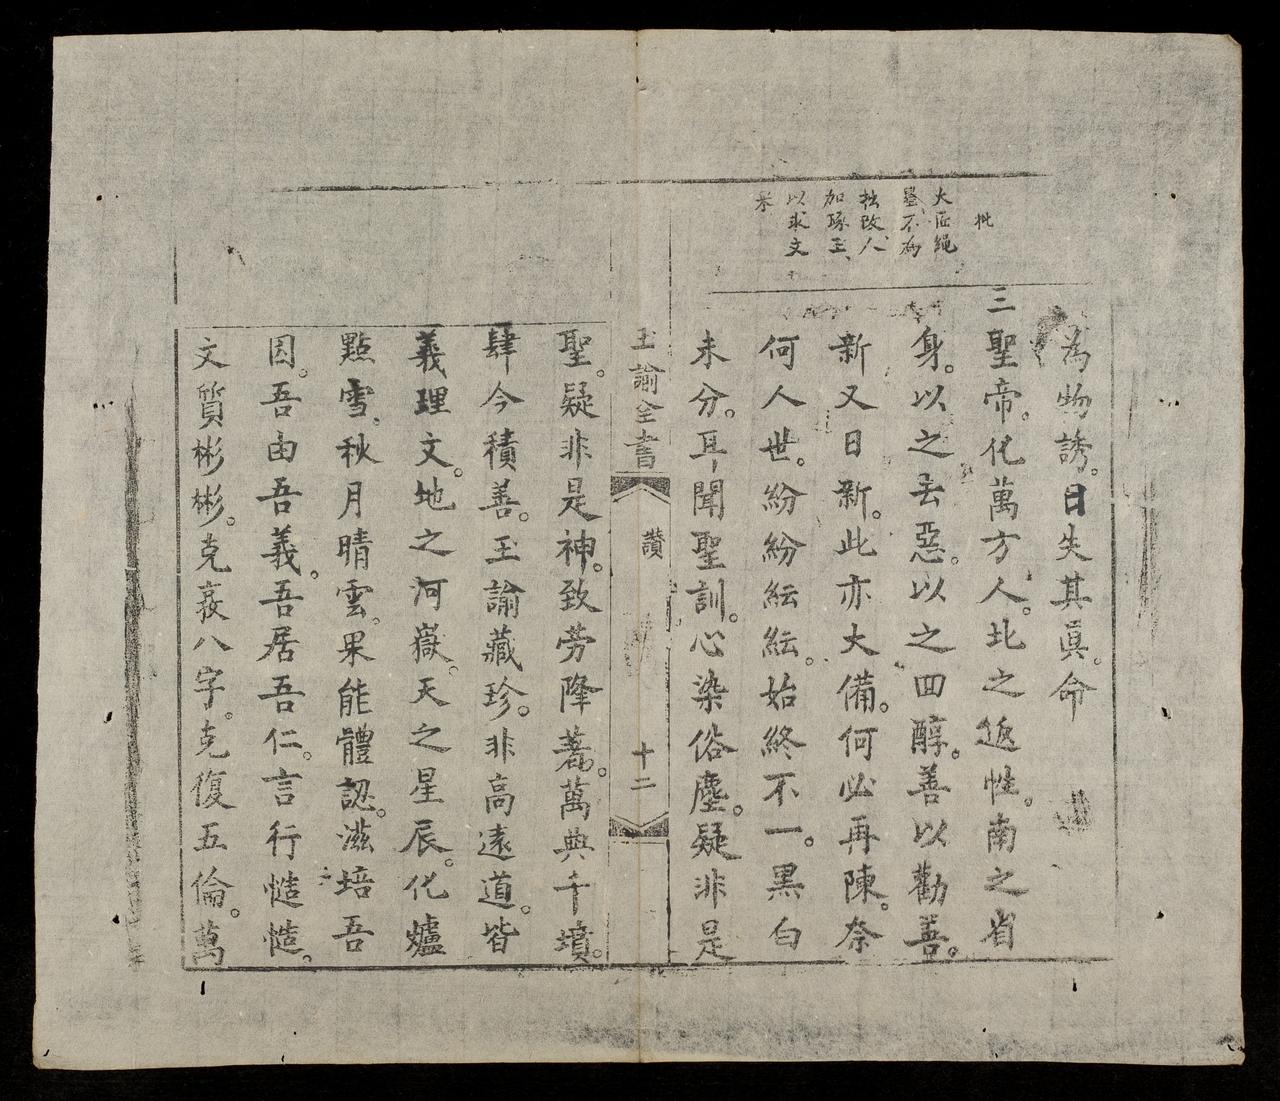 批
大匠繩
墨不為
拙改人
加琢玉
以求文
采
為物誘。日失其眞。命
三聖帝。化萬方人。北之返性。南之省
身。以之去惡。以之回醇。善以勸善。
新又日新。此亦大備。何必再陳。奈
何人世。紛紛紜紜。始終不一。黑白
未分。耳聞聖訓。心染俗塵。疑非是
玉諭全書 讚 十二
聖。疑非是神。致勞降蓍。萬典千墳。
肆今積善。玉諭藏珍。非高遠道。皆
義理文。地之河嶽。天之星辰。化爐
點雪。秋月晴雲。果能體認。滋培吾
因。吾由吾義。吾居吾仁。言行慥慥。
文質彬彬。克衮八字。克復五倫。萬